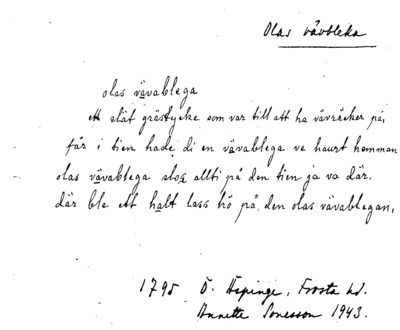 Olas vävbleka
olas vävablega
ett slät grästycke som var till att ha vävräcker på,
fär i tien hade di en vävablega ve haurt hemman
olas vävablega slos allti på den tien ja va där.
där ble ett halt lass hö på den olas vävablegan,
1795 Ö. Äspinge, Frosta hd.
Annette Jonesson 1943.